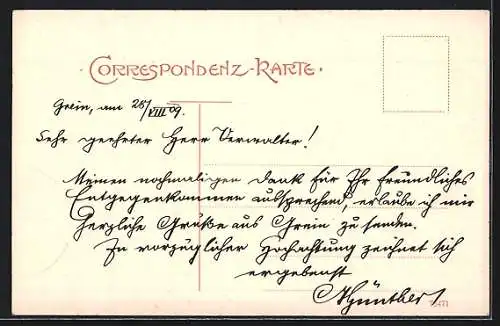 CORRESPONDENZ-KARTE.
Grein, am 28/VIII 09.
Sehr geehrter Herr Verwalter!
Meinen nochmaligen Dank für Ihr freundliches
Entgegenkommen aussprechend, erlaube ich mir
herzliche Grüße aus Grein zu senden.
In vorzüglicher Hochachtung zeichnet sich
ergebenst